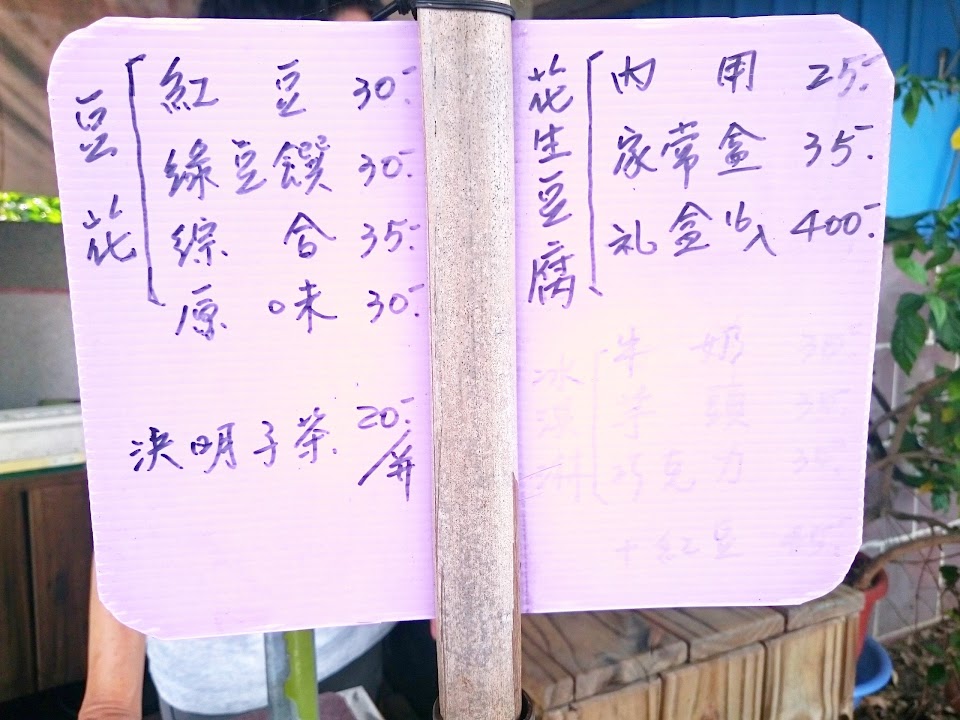 豆花
紅豆 30.-
綠豆饌 30.-
綜合 35.-
原味 30.-
決明子茶 20.-/屏
花生豆腐
內用 25.-
家常盒 35.-
礼盒16入 400.-
冰淇淋
牛奶 30.-
芋頭 35.-
巧克力 35.-
+紅豆 45.-